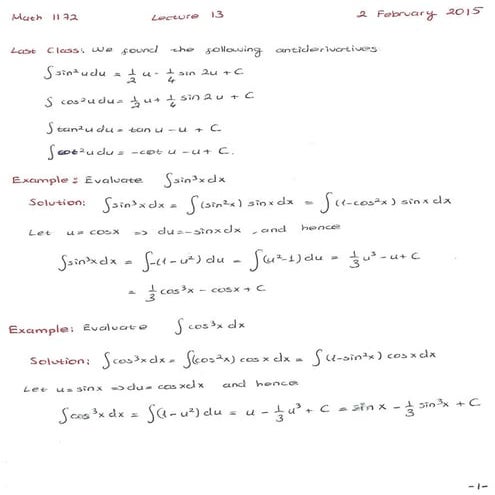 Math 1172 Lecture 13 2 February 2015
Last Class: We found the following antiderivatives
∫sin²u du = 1/2 u - 1/4 sin 2u + C
∫ cos²u du = 1/2 u + 1/4 sin 2u + C
∫tan²u du = tan u - u + C
∫cot²u du = -cot u - u + C.
Example: Evaluate ∫sin³x dx
Solution: ∫sin³x dx = ∫(sin²x) sin x dx = ∫(1-cos²x) sin x dx
Let u = cos x ⇒ du = -sin x dx, and hence
∫sin³x dx = ∫-(1-u²) du = ∫(u²-1) du = 1/3 u³ - u + C
= 1/3 cos³x - cos x + C
Example: Evaluate ∫ cos³x dx
Solution: ∫cos³x dx = ∫(cos²x) cos x dx = ∫(1-sin²x) cos x dx
Let u = sin x ⇒ du = cos x dx and hence
∫cos³x dx = ∫(1-u²) du = u - 1/3 u³ + C = sin x - 1/3 sin³x + C
-1-